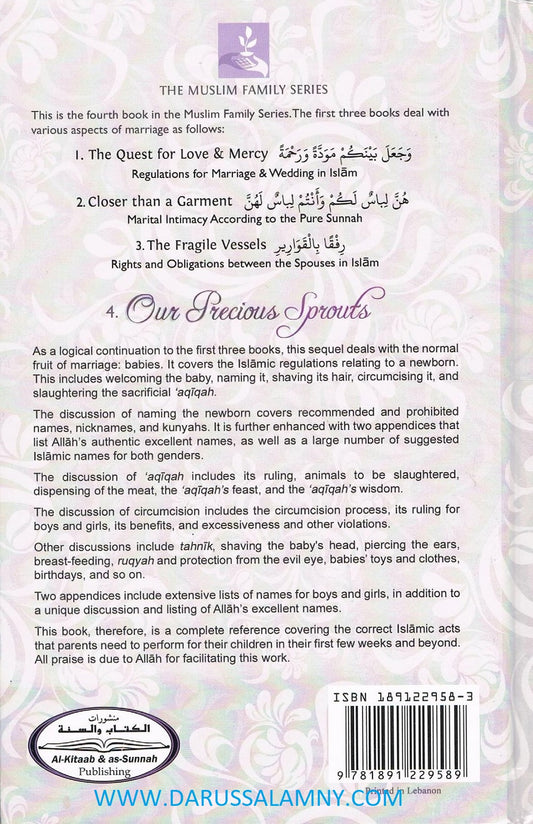 THE MUSLIM FAMILY SERIES
This is the fourth book in the Muslim Family Series.The first three books deal with
various aspects of marriage as follows:
1. The Quest for Love & Mercy وَجَعَلَ بَيْنَكُمْ مَوَدَّةً وَرَحْمَةً
Regulations for Marriage & Wedding in Islām
2. Closer than a Garment هُنَّ لِبَاسٌ لَكُمْ وَأَنْتُمْ لِبَاسٌ لَهُنَّ
Marital Intimacy According to the Pure Sunnah
3. The Fragile Vessels رِفْقًا بِالْقَوَارِيرِ
Rights and Obligations between the Spouses in Islām
4. Our Precious Sprouts
As a logical continuation to the first three books, this sequel deals with the normal
fruit of marriage: babies. It covers the Islāmic regulations relating to a newborn.
This includes welcoming the baby, naming it, shaving its hair, circumcising it, and
slaughtering the sacrificial ‘aqīqah.
The discussion of naming the newborn covers recommended and prohibited
names, nicknames, and kunyahs. It is further enhanced with two appendices that
list Allāh's authentic excellent names, as well as a large number of suggested
Islāmic names for both genders.
The discussion of ‘aqīqah includes its ruling, animals to be slaughtered,
dispensing of the meat, the ‘aqīqah's feast, and the ‘aqīqah's wisdom.
The discussion of circumcision includes the circumcision process, its ruling for
boys and girls, its benefits, and excessiveness and other violations.
Other discussions include tahnīk, shaving the baby's head, piercing the ears,
breast-feeding, ruqyah and protection from the evil eye, babies' toys and clothes,
birthdays, and so on.
Two appendices include extensive lists of names for boys and girls, in addition to
a unique discussion and listing of Allāh's excellent names.
This book, therefore, is a complete reference covering the correct Islāmic acts
that parents need to perform for their children in their first few weeks and beyond.
All praise is due to Allāh for facilitating this work.
ISBN 189122958-3
9 781891 229589
Printed in Lebanon
منشورات
الكتاب والسنة
Al-Kitaab & as-Sunnah
Publishing
WWW.DARUSSALAMNY.COM